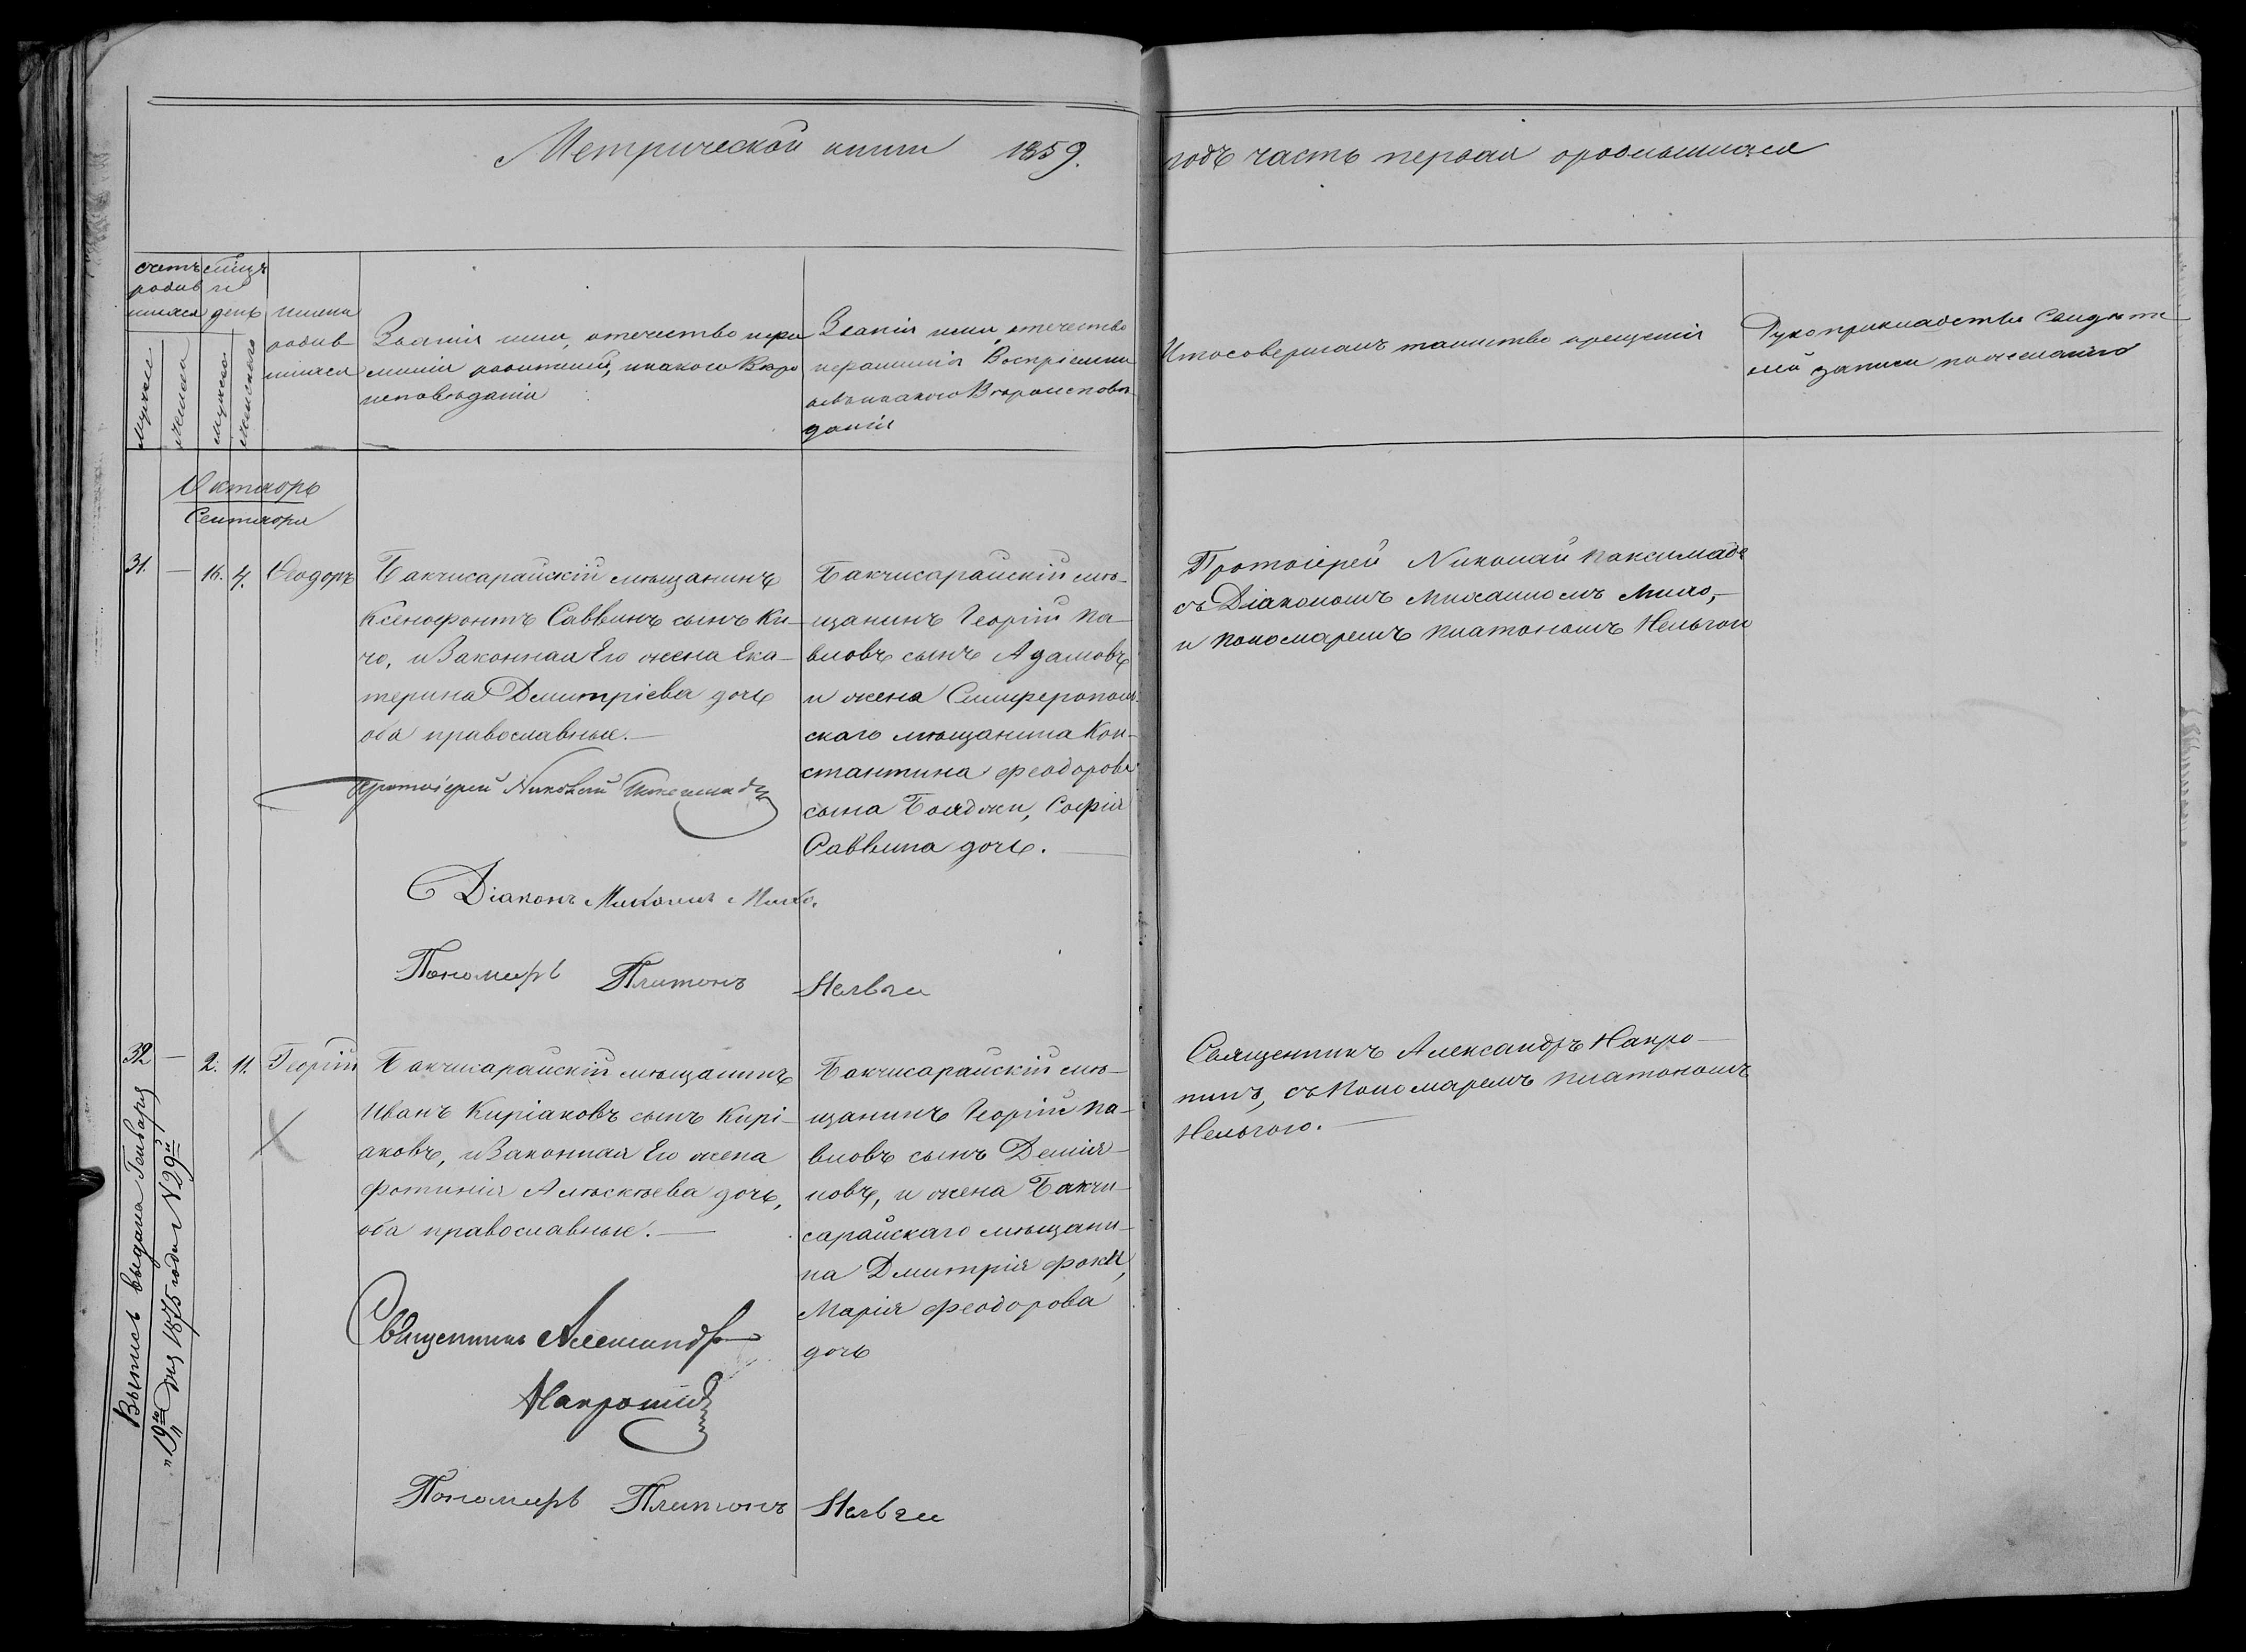 Метрической книги 1859.
годъ часть первая ородившихся
счетъ родив шихся
мѣсяцъ и день
мужска
женска
мужско
женского
имена родив шихся
Званія имя, отечество ифа
милія родителей, икакого Вѣро
исповѣданія
Званія имя, отечество
ифамилія Воспріемни
ковъ икакого Вѣроисповѣ
данія
Ктосовершалъ таинство крещенія
Рукоприкладство Свидѣте
лей записи пожеланію
Октяорь
Сентяоря
31. — 16. 4. Ѳеодоръ
Бакчисарайскій мѣщанинъ
Ксенофонтъ Саввинъ сынъ Ки-
чо, иЗаконная Его жена Ека-
терина Дмитріева дочь
оба православные. —
Протоіерей Николай
Діаконъ Михаилъ Михо.
Пономарь Платонъ Нельги
Бакчисарайскій мѣ-
щанинъ Георгій Па-
вловъ сынъ Адамовъ
и жена Симферополь-
скаго мѣщанина Кон-
стантина Феодорова
сына Бояджи, Софія
Саввина дочь. —
Протоіерей Николай Паксимаде
съ Діакономъ Михаиломъ Михо, —
и Пономаремъ Платономъ Нельгою
32 — 2. 11. Георгій
Бакчисарайскій мѣщанинъ
Иванъ Киріаковъ сынъ Кирі-
аковъ, иЗаконная Его жена
Фотинія Алѣксѣева дочь,
оба православные. —
Священникъ Александръ
Накропинъ
Пономарь Платонъ Нельги
Бакчисарайскій мѣ-
щанинъ Георгій Па-
вловъ сынъ Демія-
новъ, и жена Бакчи-
сарайскаго мѣщани-
на Дмитрія Фоки,
Марія Феодорова
дочь
Священникъ Александръ Накро-
пинъ, съ Пономаремъ Платономъ
Нельгою. —
Выпись выдана Генваря
„19го„ дня 1875 года N 29й